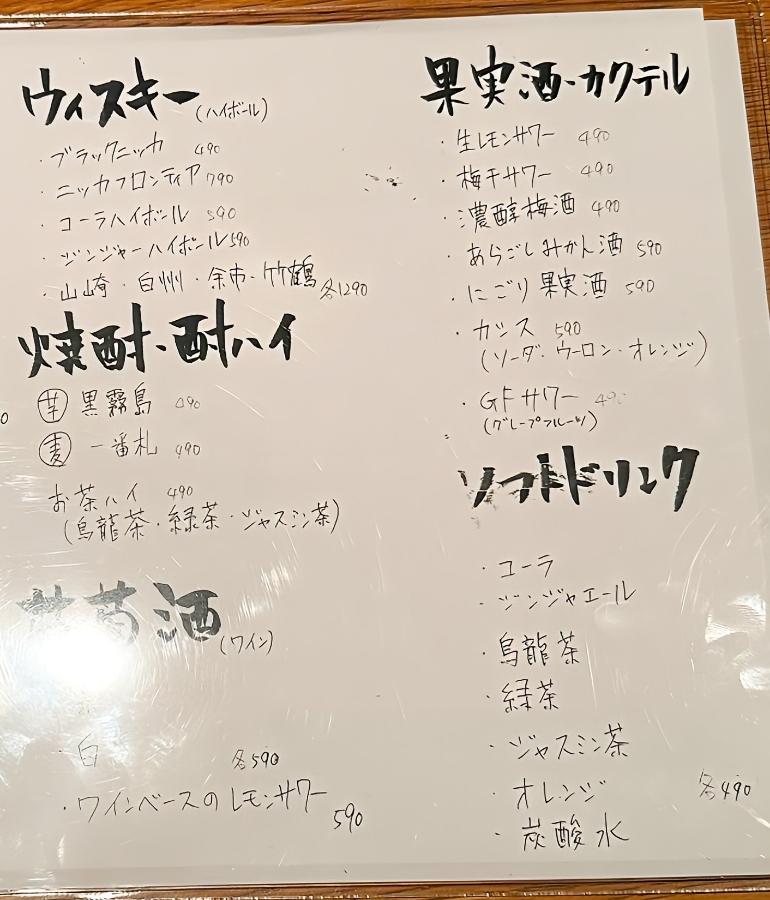 ウィスキー(ハイボール)
・ブラックニッカ 490
・ニッカフロンティア 790
・コーラハイボール 590
・ジンジャーハイボール 590
・山崎・白州・余市・竹鶴 各1290
焼酎・酎ハイ
芋 黒霧島 490
麦 一番札 490
お茶ハイ 490
(烏龍茶・緑茶・ジャスミン茶)
萄酒(ワイン)
・白 各590
・ワインベースのレモンサワー 590
果実酒・カクテル
・生レモンサワー 490
・梅干サワー 490
・濃醇梅酒 490
・あらごしみかん酒 590
・にごり果実酒 590
・カシス 590
(ソーダ・ウーロン・オレンジ)
・GFサワー 490
(グレープフルーツ)
ソフトドリンク
・コーラ
・ジンジャエール
・烏龍茶
・緑茶
・ジャスミン茶
・オレンジ 各490
・炭酸水